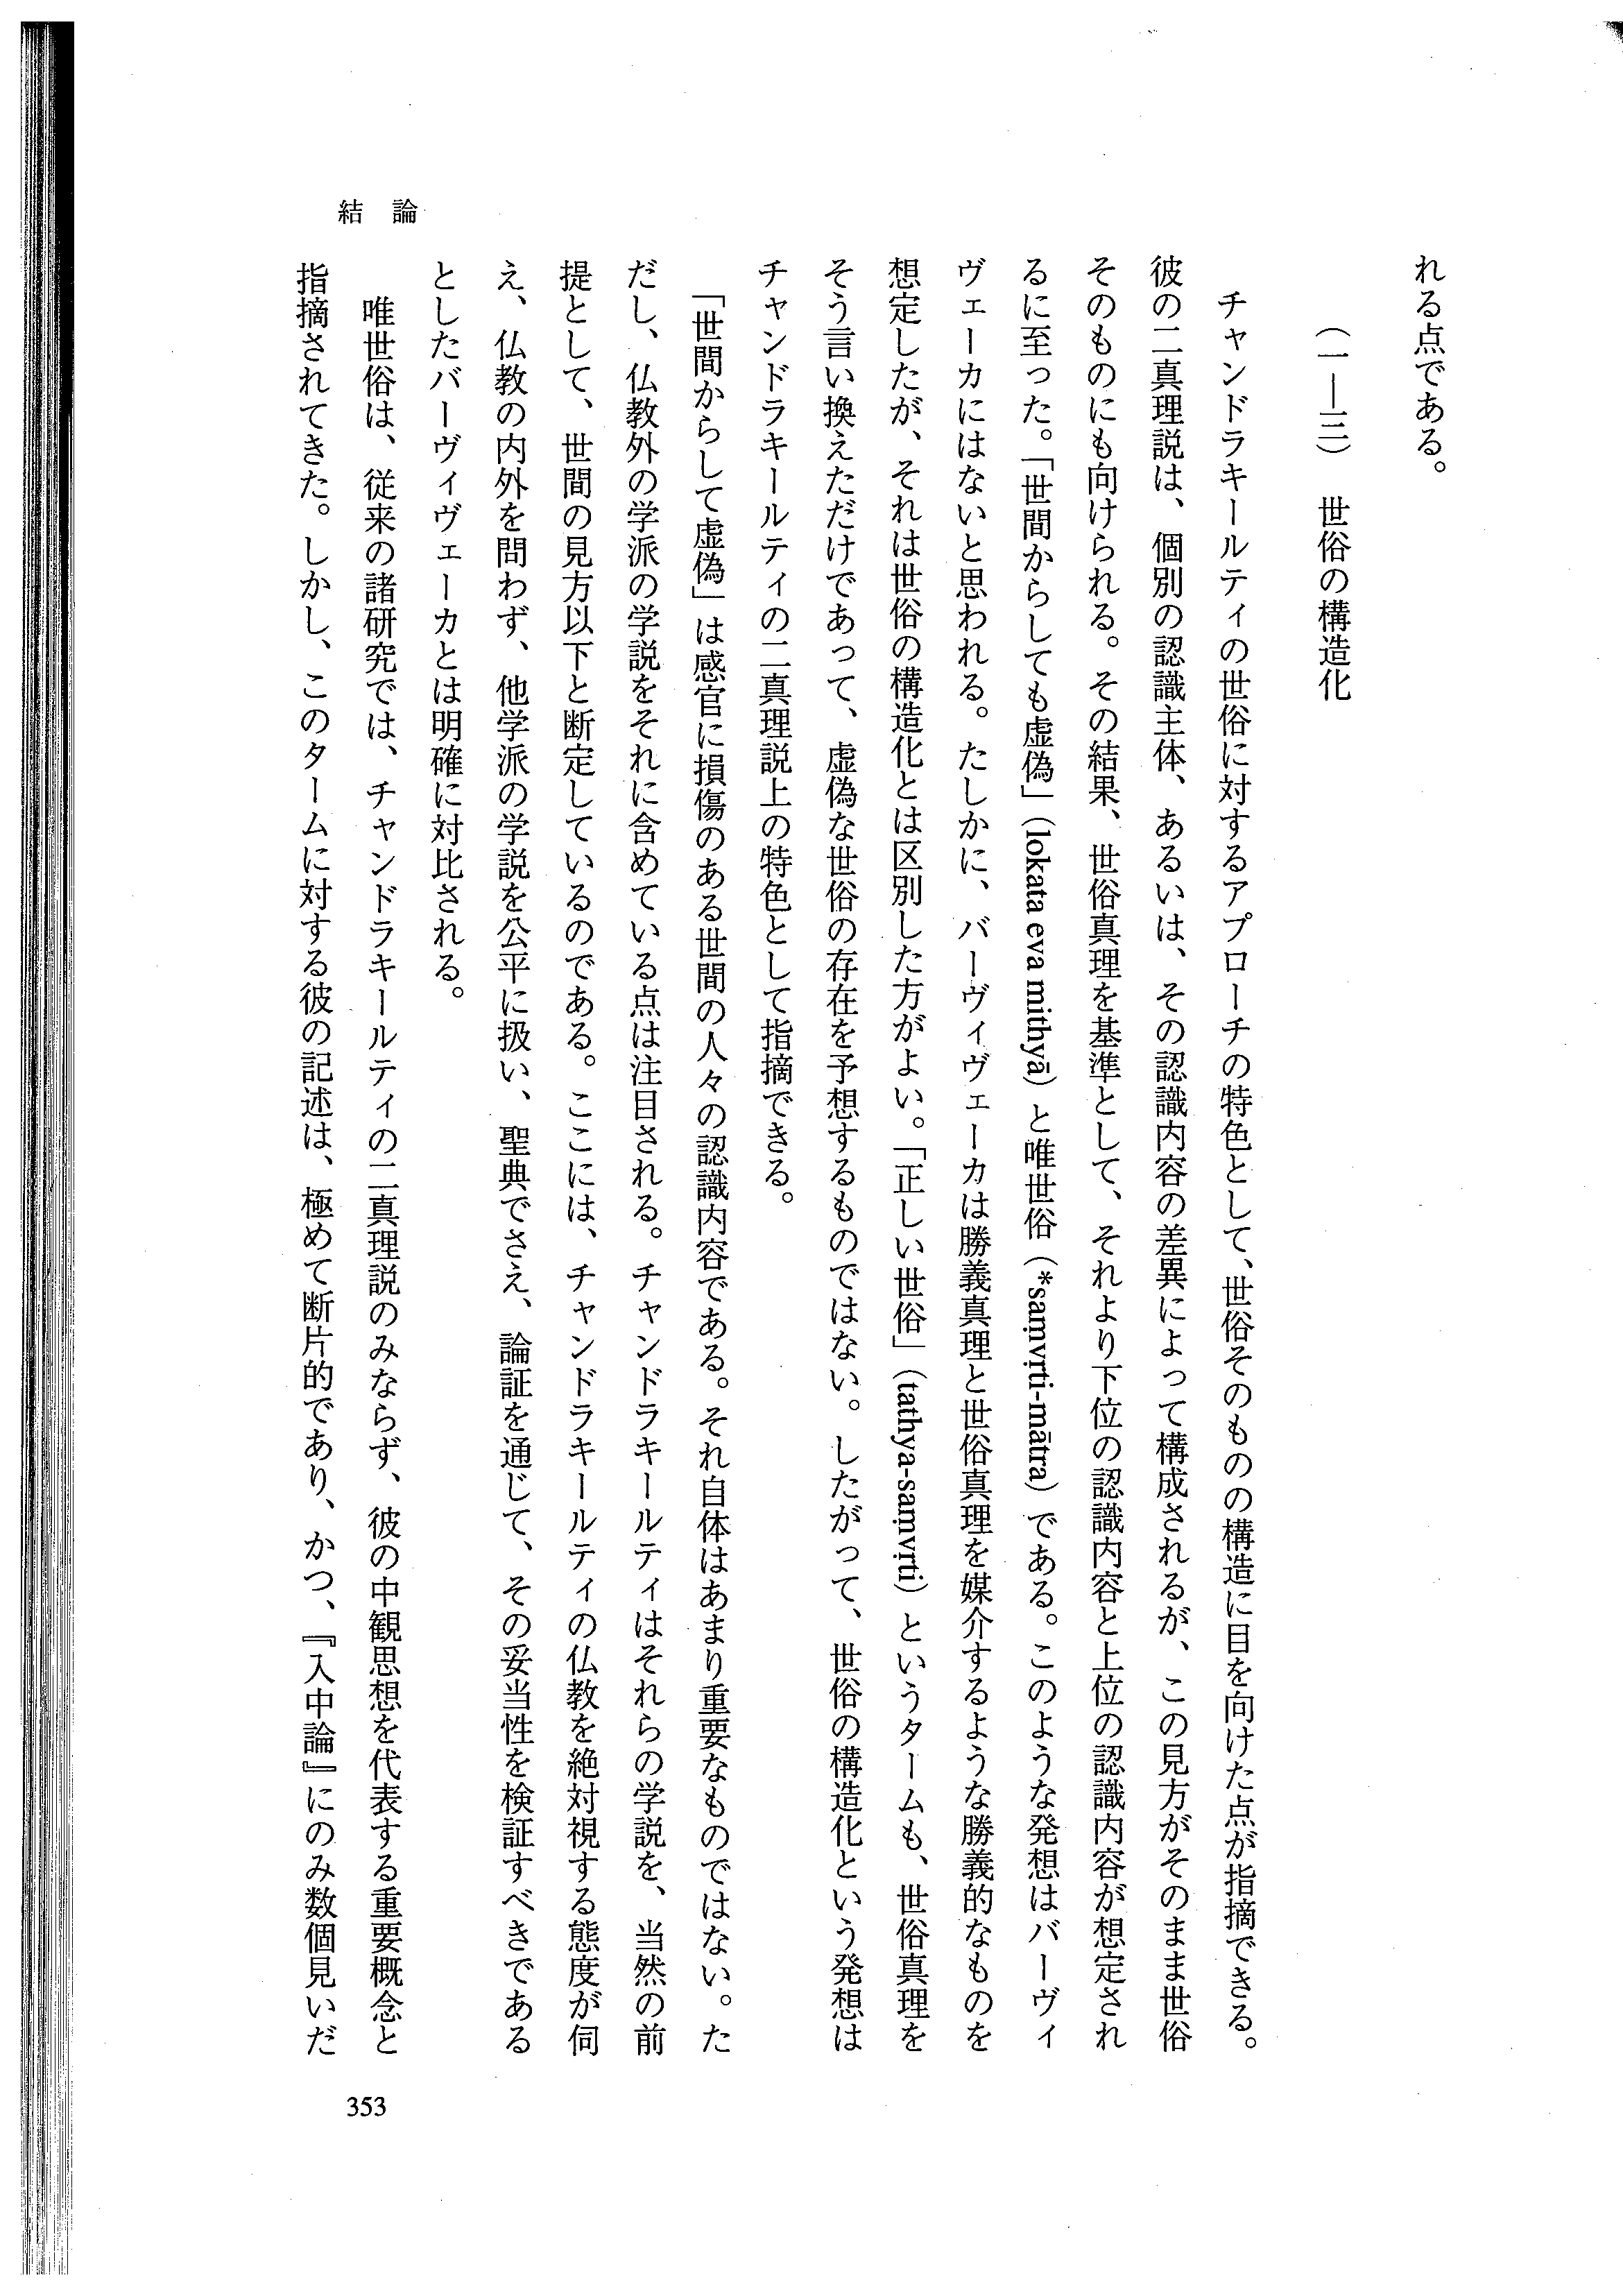 れる点である。
（一―三）　世俗の構造化
チャンドラキールティの世俗に対するアプローチの特色として、世俗そのものの構造に目を向けた点が指摘できる。
彼の二真理説は、個別の認識主体、あるいは、その認識内容の差異によって構成されるが、この見方がそのまま世俗
そのものにも向けられる。その結果、世俗真理を基準として、それより下位の認識内容と上位の認識内容が想定され
るに至った。「世間からしても虚偽」（lokata eva mithyā）と唯世俗（*saṃvṛti-mātra）である。このような発想はバーヴィ
ヴェーカにはないと思われる。たしかに、バーヴィヴェーカは勝義真理と世俗真理を媒介するような勝義的なものを
想定したが、それは世俗の構造化とは区別した方がよい。「正しい世俗」（tathya-saṃvṛti）というタームも、世俗真理を
そう言い換えただけであって、虚偽な世俗の存在を予想するものではない。したがって、世俗の構造化という発想は
チャンドラキールティの二真理説上の特色として指摘できる。
「世間からして虚偽」は感官に損傷のある世間の人々の認識内容である。それ自体はあまり重要なものではない。た
だし、仏教外の学派の学説をそれに含めている点は注目される。チャンドラキールティはそれらの学説を、当然の前
提として、世間の見方以下と断定しているのである。ここには、チャンドラキールティの仏教を絶対視する態度が伺
え、仏教の内外を問わず、他学派の学説を公平に扱い、聖典でさえ、論証を通じて、その妥当性を検証すべきである
としたバーヴィヴェーカとは明確に対比される。
唯世俗は、従来の諸研究では、チャンドラキールティの二真理説のみならず、彼の中観思想を代表する重要概念と
指摘されてきた。しかし、このタームに対する彼の記述は、極めて断片的であり、かつ、『入中論』にのみ数個見いだ
結　論
353